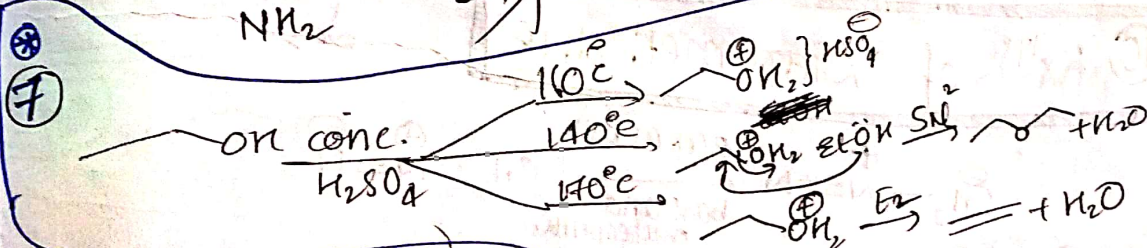 NH₂
⊛
⑦
OH conc. H₂SO₄
110°C ⊕OH₂ } HSO₄⊖
140°C ⊕OH₂ EtÖH SN² + H₂O
170°C ⊕OH₂ E₂ + H₂O